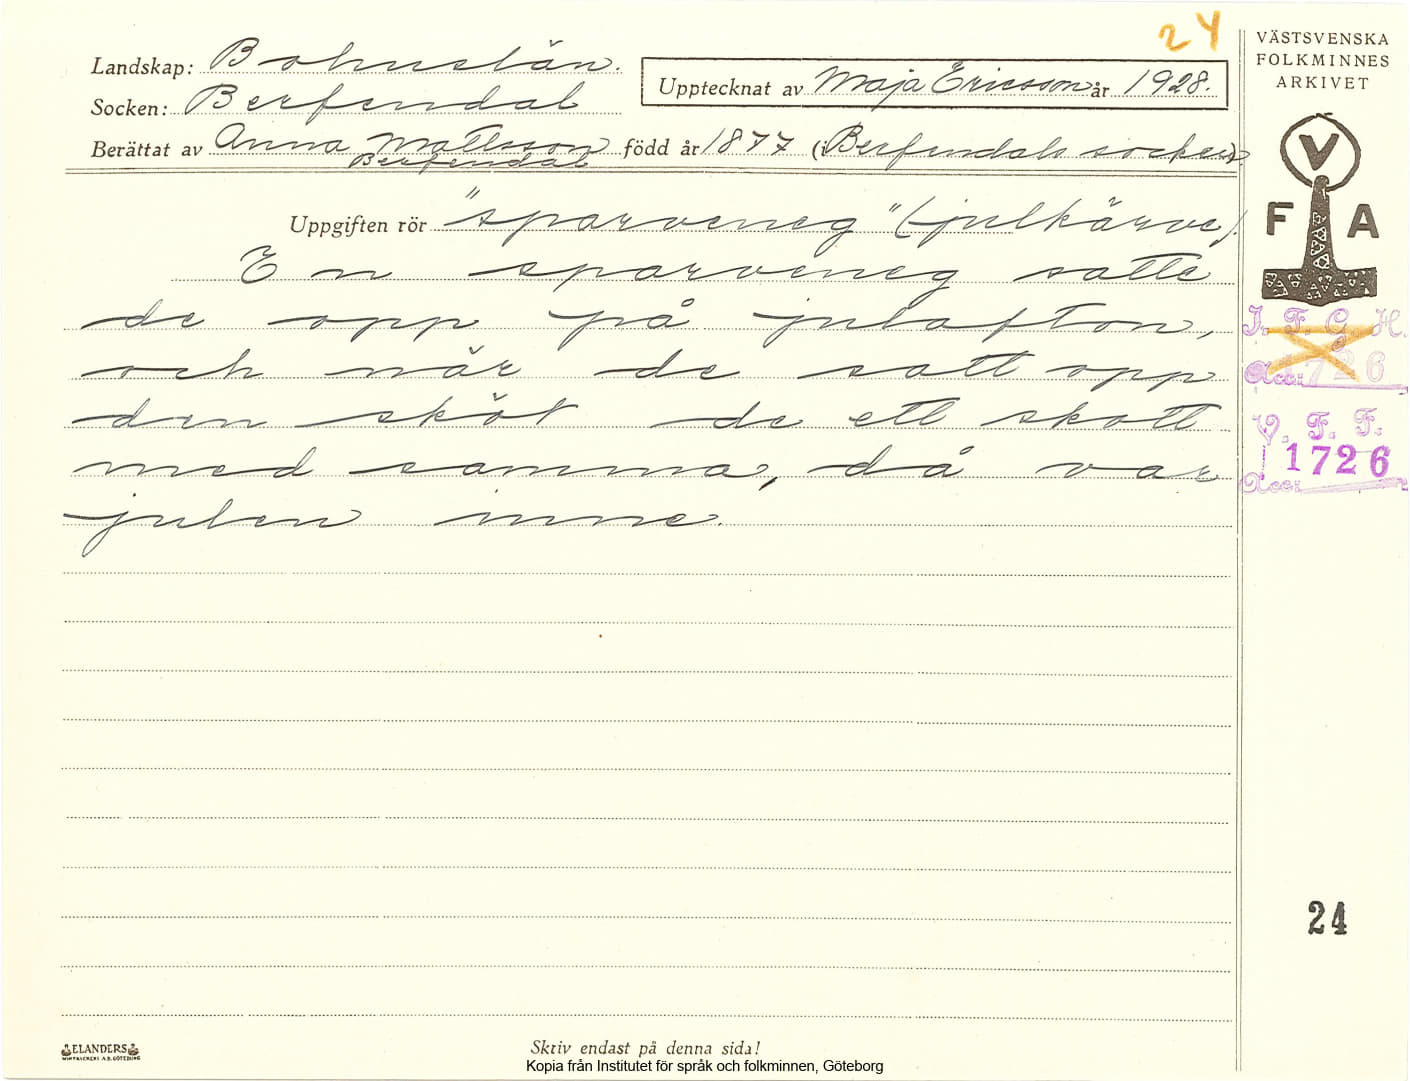 24
Landskap: Bohuslän.
Socken: Berfendal
Upptecknat av Maja Ericsson år 1928.
Berättat av Anna Mattsson född år 1877 (i Berfendals socken)
Berfendal
Uppgiften rör "sparveneg" (julkärve).
En sparveneg satte
de opp på julafton,
och når de satt opp
den sköt de ett skott
med samma, då var
julen inne.
VÄSTSVENSKA
FOLKMINNES
ARKIVET
V
F A
I. F. G. H.
Acc: 1726
V. F. F.
1726
Acc:
24
ELANDERS
Skriv endast på denna sida!
Kopia från Institutet för språk och folkminnen, Göteborg